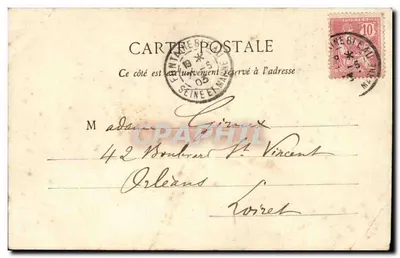 CARTE POSTALE
Ce côté est exclusivement réservé à l'adresse
FONTAINEBLEAU
SEINE ET MARNE
10
CPAPHIL
Madame
42 Boulevard St Vincent
Orléans
Loiret